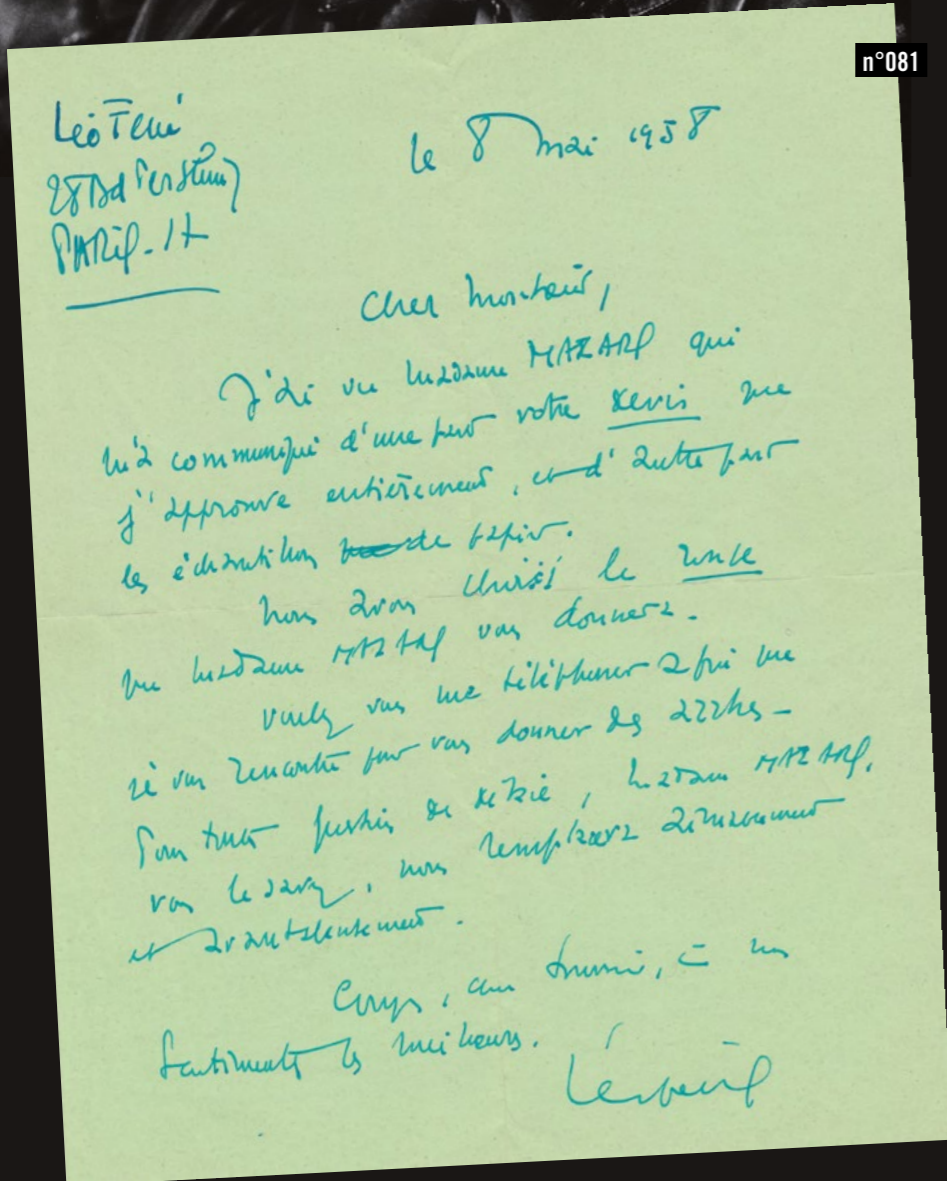 n°081
Léo Ferré
28 Bd Pershing
PARIS-17
le 8 mai 1958
Cher Monsieur,
J'ai vu Madame MAZARS qui
m'a communiqué d'une part votre devis que
j'approuve entièrement, et d'autre part
les échantillons de papier.
Nous avons choisi le
que Madame MAZARS vous donnera.
Voulez vous me téléphoner afin que
je vous rencontre pour vous donner des
Pour toute question de détail, Madame MAZARS,
vous le savez, nous remplacera
et avantageusement.
Croyez, cher Monsieur, à mes
sentiments les meilleurs.
Léo Ferré